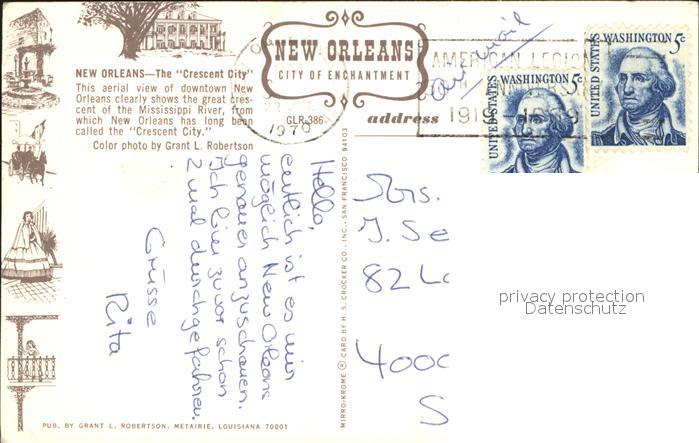 NEW ORLEANS
CITY OF ENCHANTMENT
GLR-386
NEW ORLEANS—The "Crescent City"
This aerial view of downtown New
Orleans clearly shows the great cres-
cent of the Mississippi River, from
which New Orleans has long been
called the "Crescent City."
Color photo by Grant L. Robertson
1970
AMERICAN LEGION
1919-1969
air mail
UNITED STATES
WASHINGTON 5c
UNITED STATES
WASHINGTON 5c
address
Hello,
endlich ist es mir
möglich New Orleans
genauer anzuschauen.
Ich bin zuvor schon
2 mal durchgefahren.
Grüsse
Rita
MIRRO-KROME ® CARD BY H. S. CROCKER CO., INC., SAN FRANCISCO, CA. 94103
J. Se
82 L
4000
S
privacy protection
Datenschutz
PUB. BY GRANT L. ROBERTSON, METAIRIE, LOUISIANA 70001